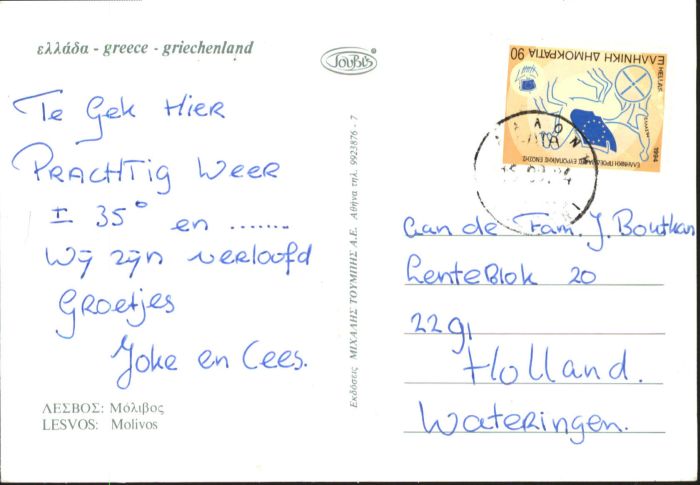 ελλάδα - greece - griechenland
Te Gek Hier
PRACHTIG WEER
± 35° en .......
Wij zijn verloofd
Groetjes
Joke en Cees.
ΛΕΣΒΟΣ: Μόλιβος
LESVOS: Molivos
ΤΟΥΒΙ'S
Εκδόσεις ΜΙΧΑΛΗΣ ΤΟΥΜΠΗΣ Α.Ε. Αθήνα τηλ. 9923876 - 7
ΕΛΛΗΝΙΚΗ ΔΗΜΟΚΡΑΤΙΑ 90
HELLAS
ΕΛΛΗΝΙΚΗ ΠΡΟΕΔΡΙΑ ΤΗΣ ΕΥΡΩΠΑΪΚΗΣ ΕΝΩΣΗΣ 1994
aan de Fam. J. Boutkan
Lenteblok 20
2291
Holland.
Wateringen.